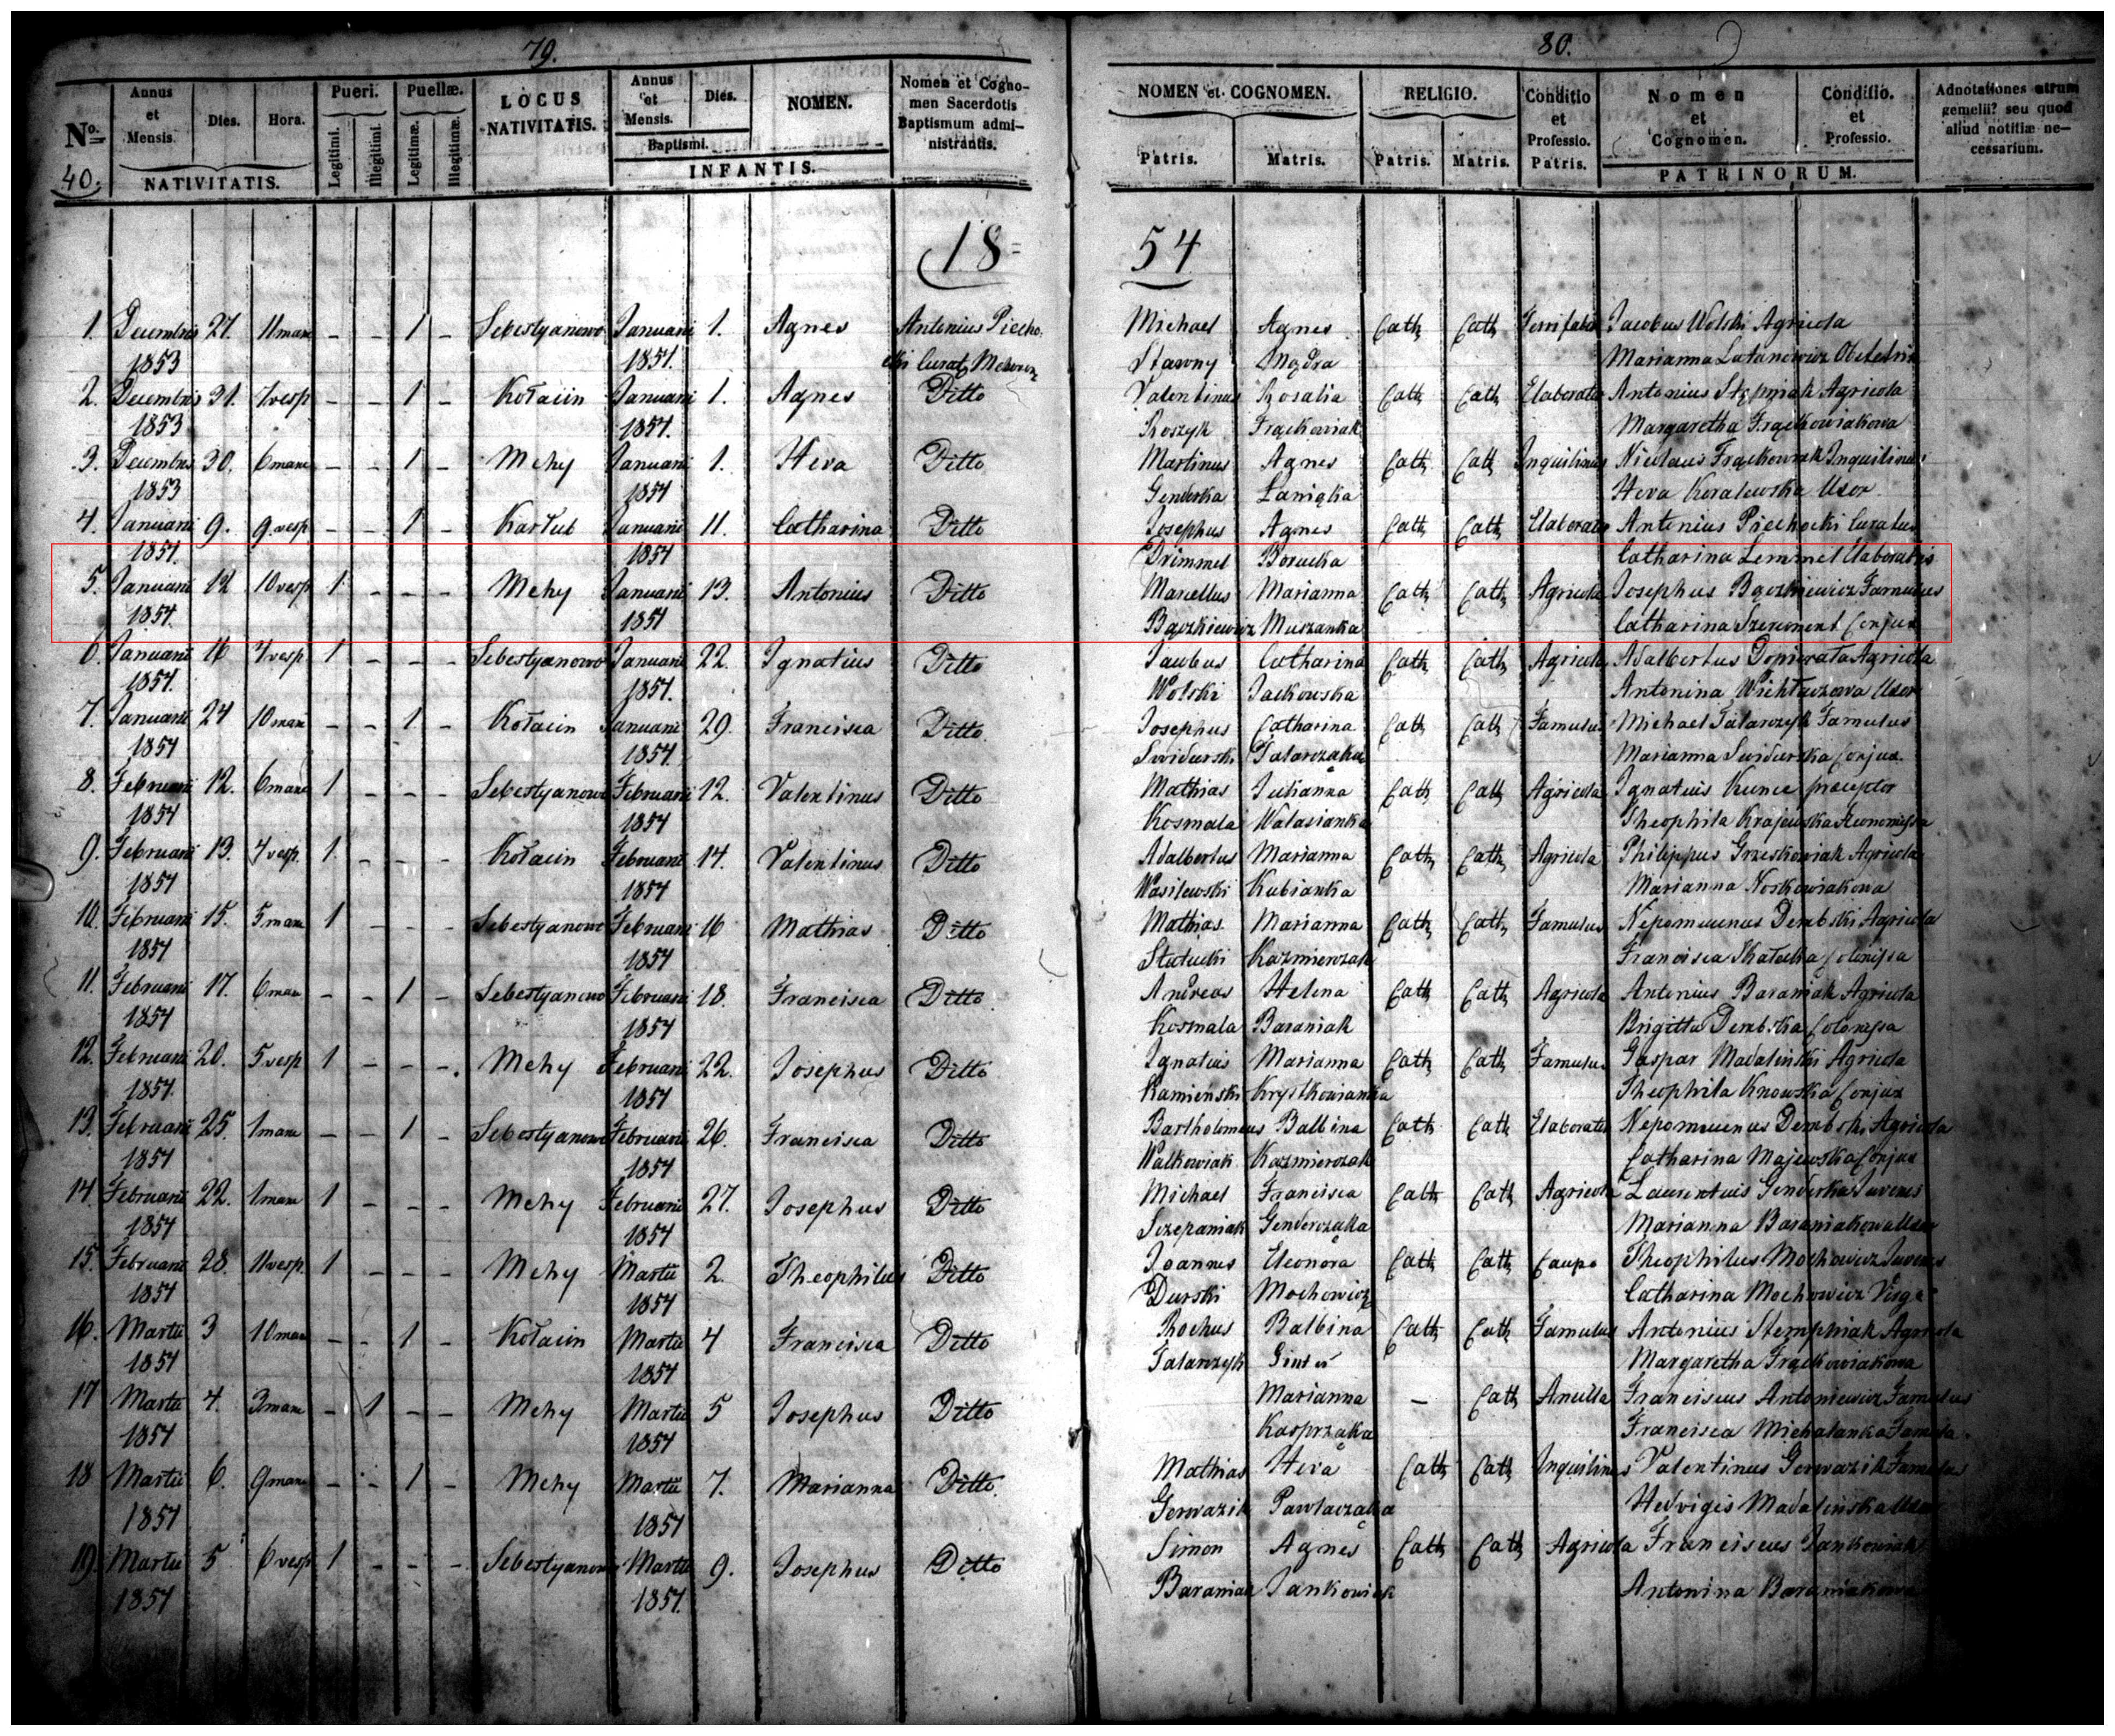 79.
80.
No.
40.
Annus et Mensis.
Dies.
Hora.
NATIVITATIS.
Pueri.
Legitimi.
Illegitimi.
Puellæ.
Legitimæ.
Illegitimæ.
LOCUS NATIVITATIS.
Annus et Mensis.
Dies.
Baptismi.
NOMEN.
INFANTIS.
Nomen et Cogno-
men Sacerdotis
Baptismum admi-
nistrantis.
NOMEN et COGNOMEN.
Patris.
Matris.
RELIGIO.
Patris.
Matris.
Conditio et Professio. Patris.
Nomen et Cognomen.
Conditio. et Professio.
PATRINORUM.
Adnotationes utrum
gemelli? seu quod
aliud notitiæ ne-
cessarium.
18= 54
1. Decembris 27. 11 mane - - 1 - Sebestyanowo Januarii 1. Agnes Antonius Piecho- Michael Agnes Cath Cath Jacobus Wolski Agricola
1853 1854. cki Curat Stawny Mądra Marianna Latanowicz Obstetrix
2. Decembris 31. 7 vesp - - 1 - Kołacin Januarii 1. Agnes Ditto Valentinus Rosalia Cath Cath Elaborator Antonius Stępniak Agricola
1853 1854. Roszyk Frąckowiak Margaretha Frąckowiakowa
3. Decembris 30. 6 mane - - 1 - Mchy Januarii 1. Heva Ditto Martinus Agnes Cath Cath Inquilinus Nicolaus Frąckowiak Inquilinus
1853 1854 Genderka Łaniąka Heva Koralewska Uxor
4. Januarii 9. 9 vesp - - 1 - Karłub Januarii 11. Catharina Ditto Josephus Agnes Cath Cath Elaborator Antonius Piechocki Curatus
1854. 1854 Drimmel Borucka Catharina Lemmel Elaboratris
5. Januarii 12 10 vesp 1 - - - Mchy Januarii 13. Antonius Ditto Marcellus Marianna Cath Cath Agricola Josephus Bączkiewicz Famulus
1854. 1854 Bączkiewicz Muszanka Catharina Conjux
6. Januarii 16 4 vesp 1 - - - Sebestyanowo Januarii 22. Ignatius Ditto Jacobus Catharina Cath Cath Agricola Adalbertus Dopierała Agricola
1854. 1854. Wolski Jackowska Antonina Uxor
7. Januarii 24 10 mane - - 1 - Kołacin Januarii 29. Francisca Ditto Josephus Catharina Cath Cath Famulus Michael Tatarczyk Famulus
1854 1854. Swidurski Tatarczaka Marianna Swidurska Conjux.
8. Februarii 12. 6 mane 1 - - - Sebestyanowo Februarii 12. Valentinus Ditto Mathias Julianna Cath Cath Agricola Ignatius Kunce præceptor
1854 1854 Kosmala Walasianka Theophila Krajewska
9. Februarii 13. 4 vesp. 1 - - - Kołacin Februarii 14. Valentinus Ditto Adalbertus Marianna Cath Cath Agricola Philippus Grzeskowiak Agricola
1854 1854 Wasilewski Kubianka Marianna Noskowiakowa
10. Februarii 15. 5 mane 1 - - - Sebestyanowo Februarii 16 Mathias Ditto Mathias Marianna Cath Cath Famulus Nepomucenus Dembski Agricola
1854 1854 Kazmierczak Francisca
11. Februarii 17. 6 mane - - 1 - Sebestyanowo Februarii 18. Francisca Ditto Andreas Helena Cath Cath Agricola Antonius Baraniak Agricola
1854 1854 Kosmala Baraniak Brigitta Dembska
12. Februarii 20. 5 vesp 1 - - - Mchy Februarii 22. Josephus Ditto Ignatius Marianna Cath Cath Famulus Gaspar Madaliński Agricola
1854. 1854 Kamieński Krystkowianka Theophila Knowska Conjux
13. Februarii 25. 1 mane - - 1 - Sebestyanowo Februarii 26. Francisca Ditto Bartholomeus Balbina Cath Cath Elaborator Nepomucenus Dembski Agricola
1854 1854 Walkowiak Kazmierczak Catharina Majewska Conjux
14. Februarii 22. 1 mane 1 - - - Mchy Februarii 27. Josephus Ditto Michael Francisca Cath Cath Agricola Laurentius Genderka Juvenis
1854 1854 Szczepaniak Genderczaka Marianna Baraniakowa Uxor
15. Februarii 28. 11 vesp. 1 - - - Mchy Martii 2. Theophilus Ditto Joannes Eleonora Cath Cath Caupo Theophilus Mochowicz Juvenis
1854 1854 Durski Mochowicz Catharina Mochowicz Virgo
16. Martii 3 10 mane - - 1 - Kołacin Martii 4 Francisca Ditto Rochus Balbina Cath Cath Famulus Antonius Stempniak Agricola
1854 1854 Tatarczyk Margaretha Frąckowiakowa
17 Martii 4. 3 mane - 1 - - Mchy Martii 5 Josephus Ditto Marianna - Cath Ancilla Franciscus Antoniewicz Famulus
1854 1854 Kasprzaka Francisca Michalanka Famula.
18 Martii 6. 9 mane - - 1 - Mchy Martii 7. Marianna Ditto. Mathias Heva Cath Cath Inquilinus Valentinus Gerwazik Famulus
1854 1854 Gerwazik Pawlaczaka Hedvigis Madalińska Uxor
19. Martii 5 6 vesp 1 - - - Sebestyanowo Martii 9. Josephus Ditto Simon Agnes Cath Cath Agricola Franciscus Jankowiak
1854 1854. Baraniak Jankowiak Antonina Baraniakowa